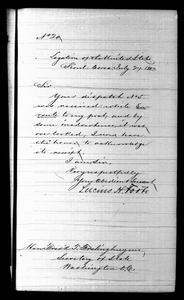 No 20
Legation of the United States
Seoul Corea, July 27, 188
Sir
Your dispatch No 5
was received while En
route to my post, and by
some inadvertence it was
overlooked, I now have
the honor to acknowledge
its receipt.
I am Sir,
Very respectfully
Your Obedient Servant
Lucius H. Foote
Hon Fred'k T. Frelinghuysen
Secretary of State
Washington D.C.